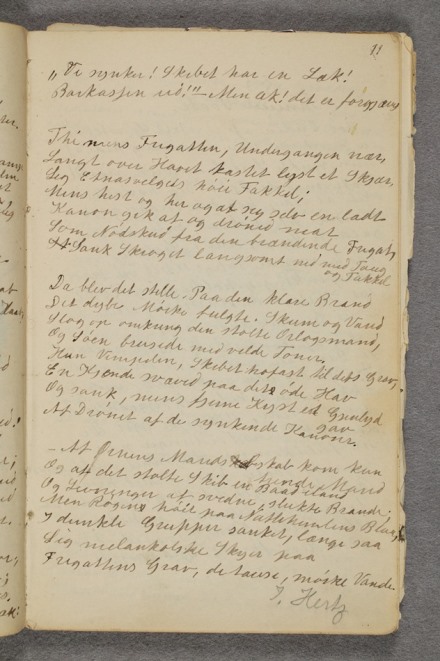 11
„Vi synker! Skibet har en Læk!
Barkassen ud!" – Men ak! det er forgjæves
Thi mens Fregatten, Undergangen nær,
Langt over Havet kastet lyst et Skjær,
Lig Etnasvælgets høie Fakkel;
Mens hist og her agaf sig selv en ladt
Kanon gik af og drøned mat
Som Nødskud fra den brændende Fregat,
Sank Skroget langsomt ned med Toug
og Takkel
Da blev det stille. Paa den klare Brand
Det dybe Mørke fulgte. Skum og Vand
Slog op omkring den stolte Orlogsmand,
Og Søen brusede med vilde Toner.
Hun Vimpelen, Skibet hofast til dets Grav,
En Kjende svæved paa det øde Hav
Og sank, mens fjerne Kyst et Gjenlyd
gav
Af Drønet af de synkende Kanoner.
– Af Ørnens Mandskab kom kun
tiende Mand
Og af det stolte Skib en Baad iland
Og Levninger af svedne, slukte Brande.
Men Røgens høit paa Nattehimlens Blaa,
I dunkle Grupper sanket, længe saa
Lig melankolske Skyer paa
Fregattens Grav, de tause, mørke Vande.
J. Hertz